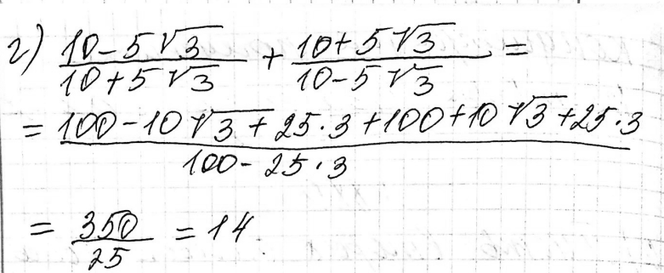 г) (10-5√3)/(10+5√3) + (10+5√3)/(10-5√3) =
= (100-10√3+25·3+100+10√3+25·3)/(100-25·3)
= 350/25 = 14